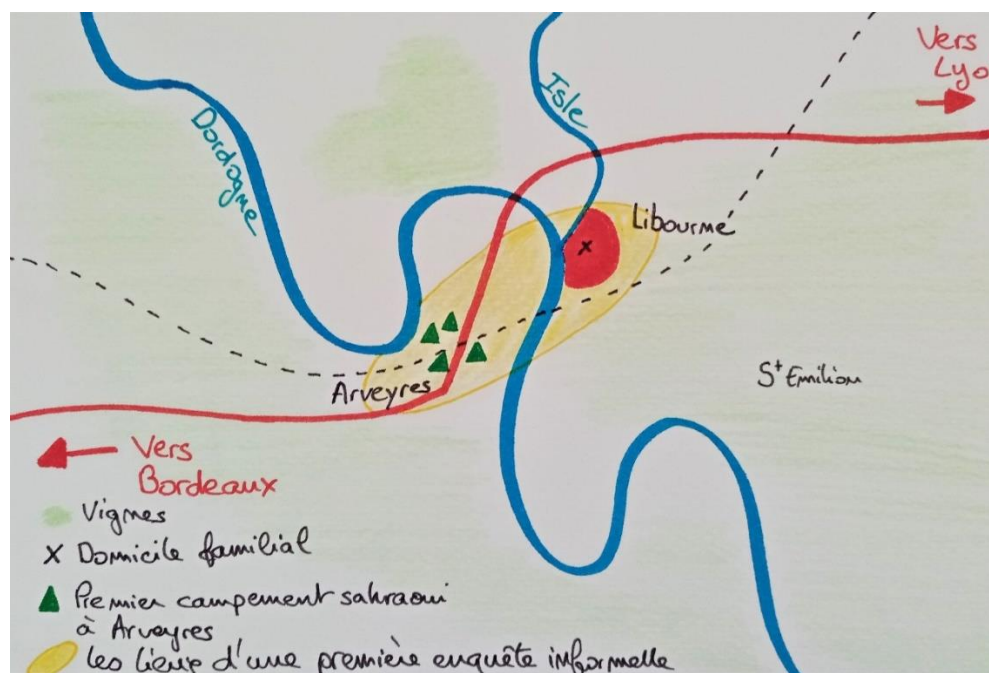 Vers
Lyo
Isle
Dordogne
Libourne
St Emilion
Arveyres
Vers
Bordeaux
Vignes
x Domicile familial
Premier campement sahraoui
à Arveyres
les lieux d'une première enquête informelle